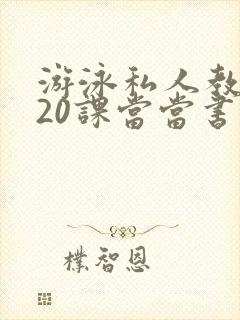 游泳私人教
20課當當書
樸智恩